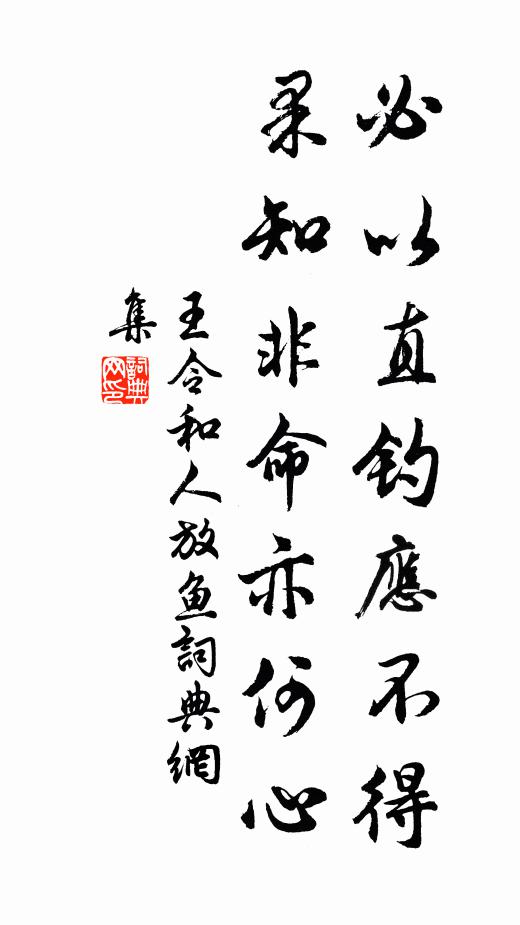 必以直钓應不得
果知非命亦何心
王令和人放鱼詞典網
集
詞典網印